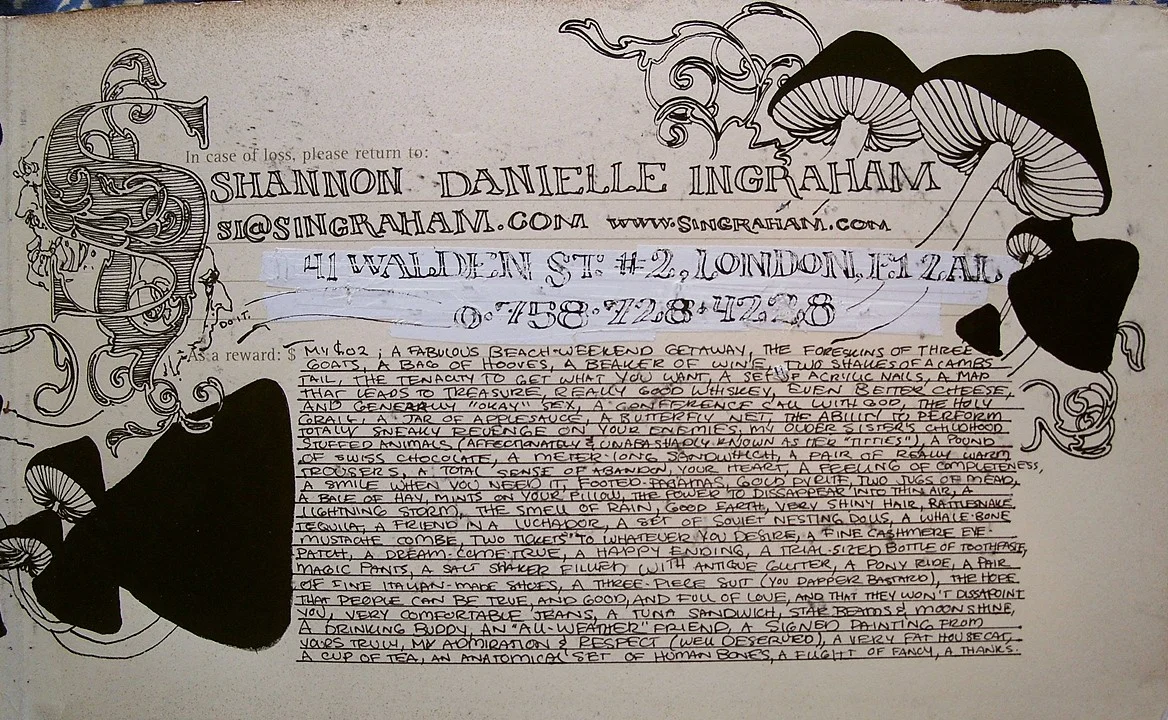 In case of loss, please return to:
SHANNON DANIELLE INGRAHAM
SI@SINGRAHAM.COM WWW.SINGRAHAM.COM
41 WALDEN ST. #2, LONDON, E1 2AL
0·758·728·4228
DO IT.
As a reward: $ MY $.02 ; A FABULOUS BEACH-WEEKEND GETAWAY, THE FORESKINS OF THREE
GOATS, A BAG OF HOOVES, A BEAKER OF WINE, TWO SHAKES OF A LAMBS
TAIL, THE TENACITY TO GET WHAT YOU WANT, A SET OF ACRYLIC NAILS, A MAP
THAT LEADS TO TREASURE, REALLY GOOD WHISKEY, EVEN BETTER CHEESE,
AND GENERALLY "OKAY" SEX, A CONFERENCE CALL WITH GOD, THE HOLY
GRAIL, A JAR OF APPLESAUCE, A BUTTERFLY NET, THE ABILITY TO PERFORM
TOTALLY SNEAKY REVENGE ON YOUR ENEMIES, MY OLDER SISTER'S CHILDHOOD
STUFFED ANIMALS (AFFECTIONATELY & UNABASHADLY KNOWN AS HER "TITTIES"), A POUND
OF SWISS CHOCOLATE, A METER-LONG SANDWHICH, A PAIR OF REALLY WARM
TROUSERS, A TOTAL SENSE OF ABANDON, YOUR HEART, A FEELING OF COMPLETENESS,
A SMILE WHEN YOU NEED IT, FOOTED PAJAMAS, GOLD PYRITE, TWO JUGS OF MEAD,
A BALE OF HAY, MINTS ON YOUR PILLOW, THE POWER TO DISSAPPEAR INTO THIN AIR, A
LIGHTNING STORM, THE SMELL OF RAIN, GOOD EARTH, VERY SHINY HAIR, RATTLESNAKE
TEQUILA, A FRIEND IN A LUCHADOR, A SET OF SOVIET NESTING DOLLS, A WHALE-BONE
MUSTACHE COMBE, TWO TICKETS TO WHATEVER YOU DESIRE, A FINE CASHMERE EYE-
PATCH, A DREAM-COME-TRUE, A HAPPY ENDING, A TRIAL-SIZED BOTTLE OF TOOTHPASTE,
MAGIC PANTS, A SALT SHAKER FILLED WITH ANTIQUE GLITTER, A PONY RIDE, A PAIR
OF FINE ITALIAN-MADE SHOES, A THREE-PIECE SUIT (YOU DAPPER BASTARD), THE HOPE
THAT PEOPLE CAN BE TRUE, AND GOOD, AND FULL OF LOVE, AND THAT THEY WON'T DISSAPOINT
YOU, VERY COMFORTABLE JEANS, A TUNA SANDWICH, STAR BEAMS & MOONSHINE,
A DRINKING BUDDY, AN "ALL-WEATHER" FRIEND, A SIGNED PAINTING FROM
YOURS TRULY, MY ADMIRATION & RESPECT (WELL DESERVED), A VERY FAT HOUSECAT,
A CUP OF TEA, AN ANATOMICAL SET OF HUMAN BONES, A FLIGHT OF FANCY, A THANKS.